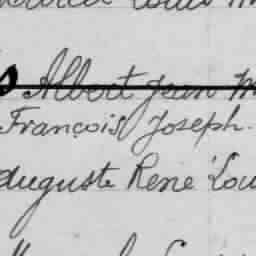 Louis
Albert Jean
François Joseph.
Auguste René Lou